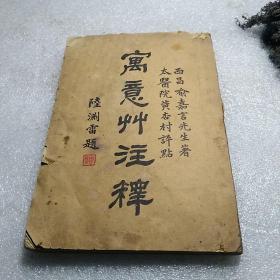 西昌俞嘉言先生著
太醫院黄杏村評點
寓意艸注釋
陸淵雷題